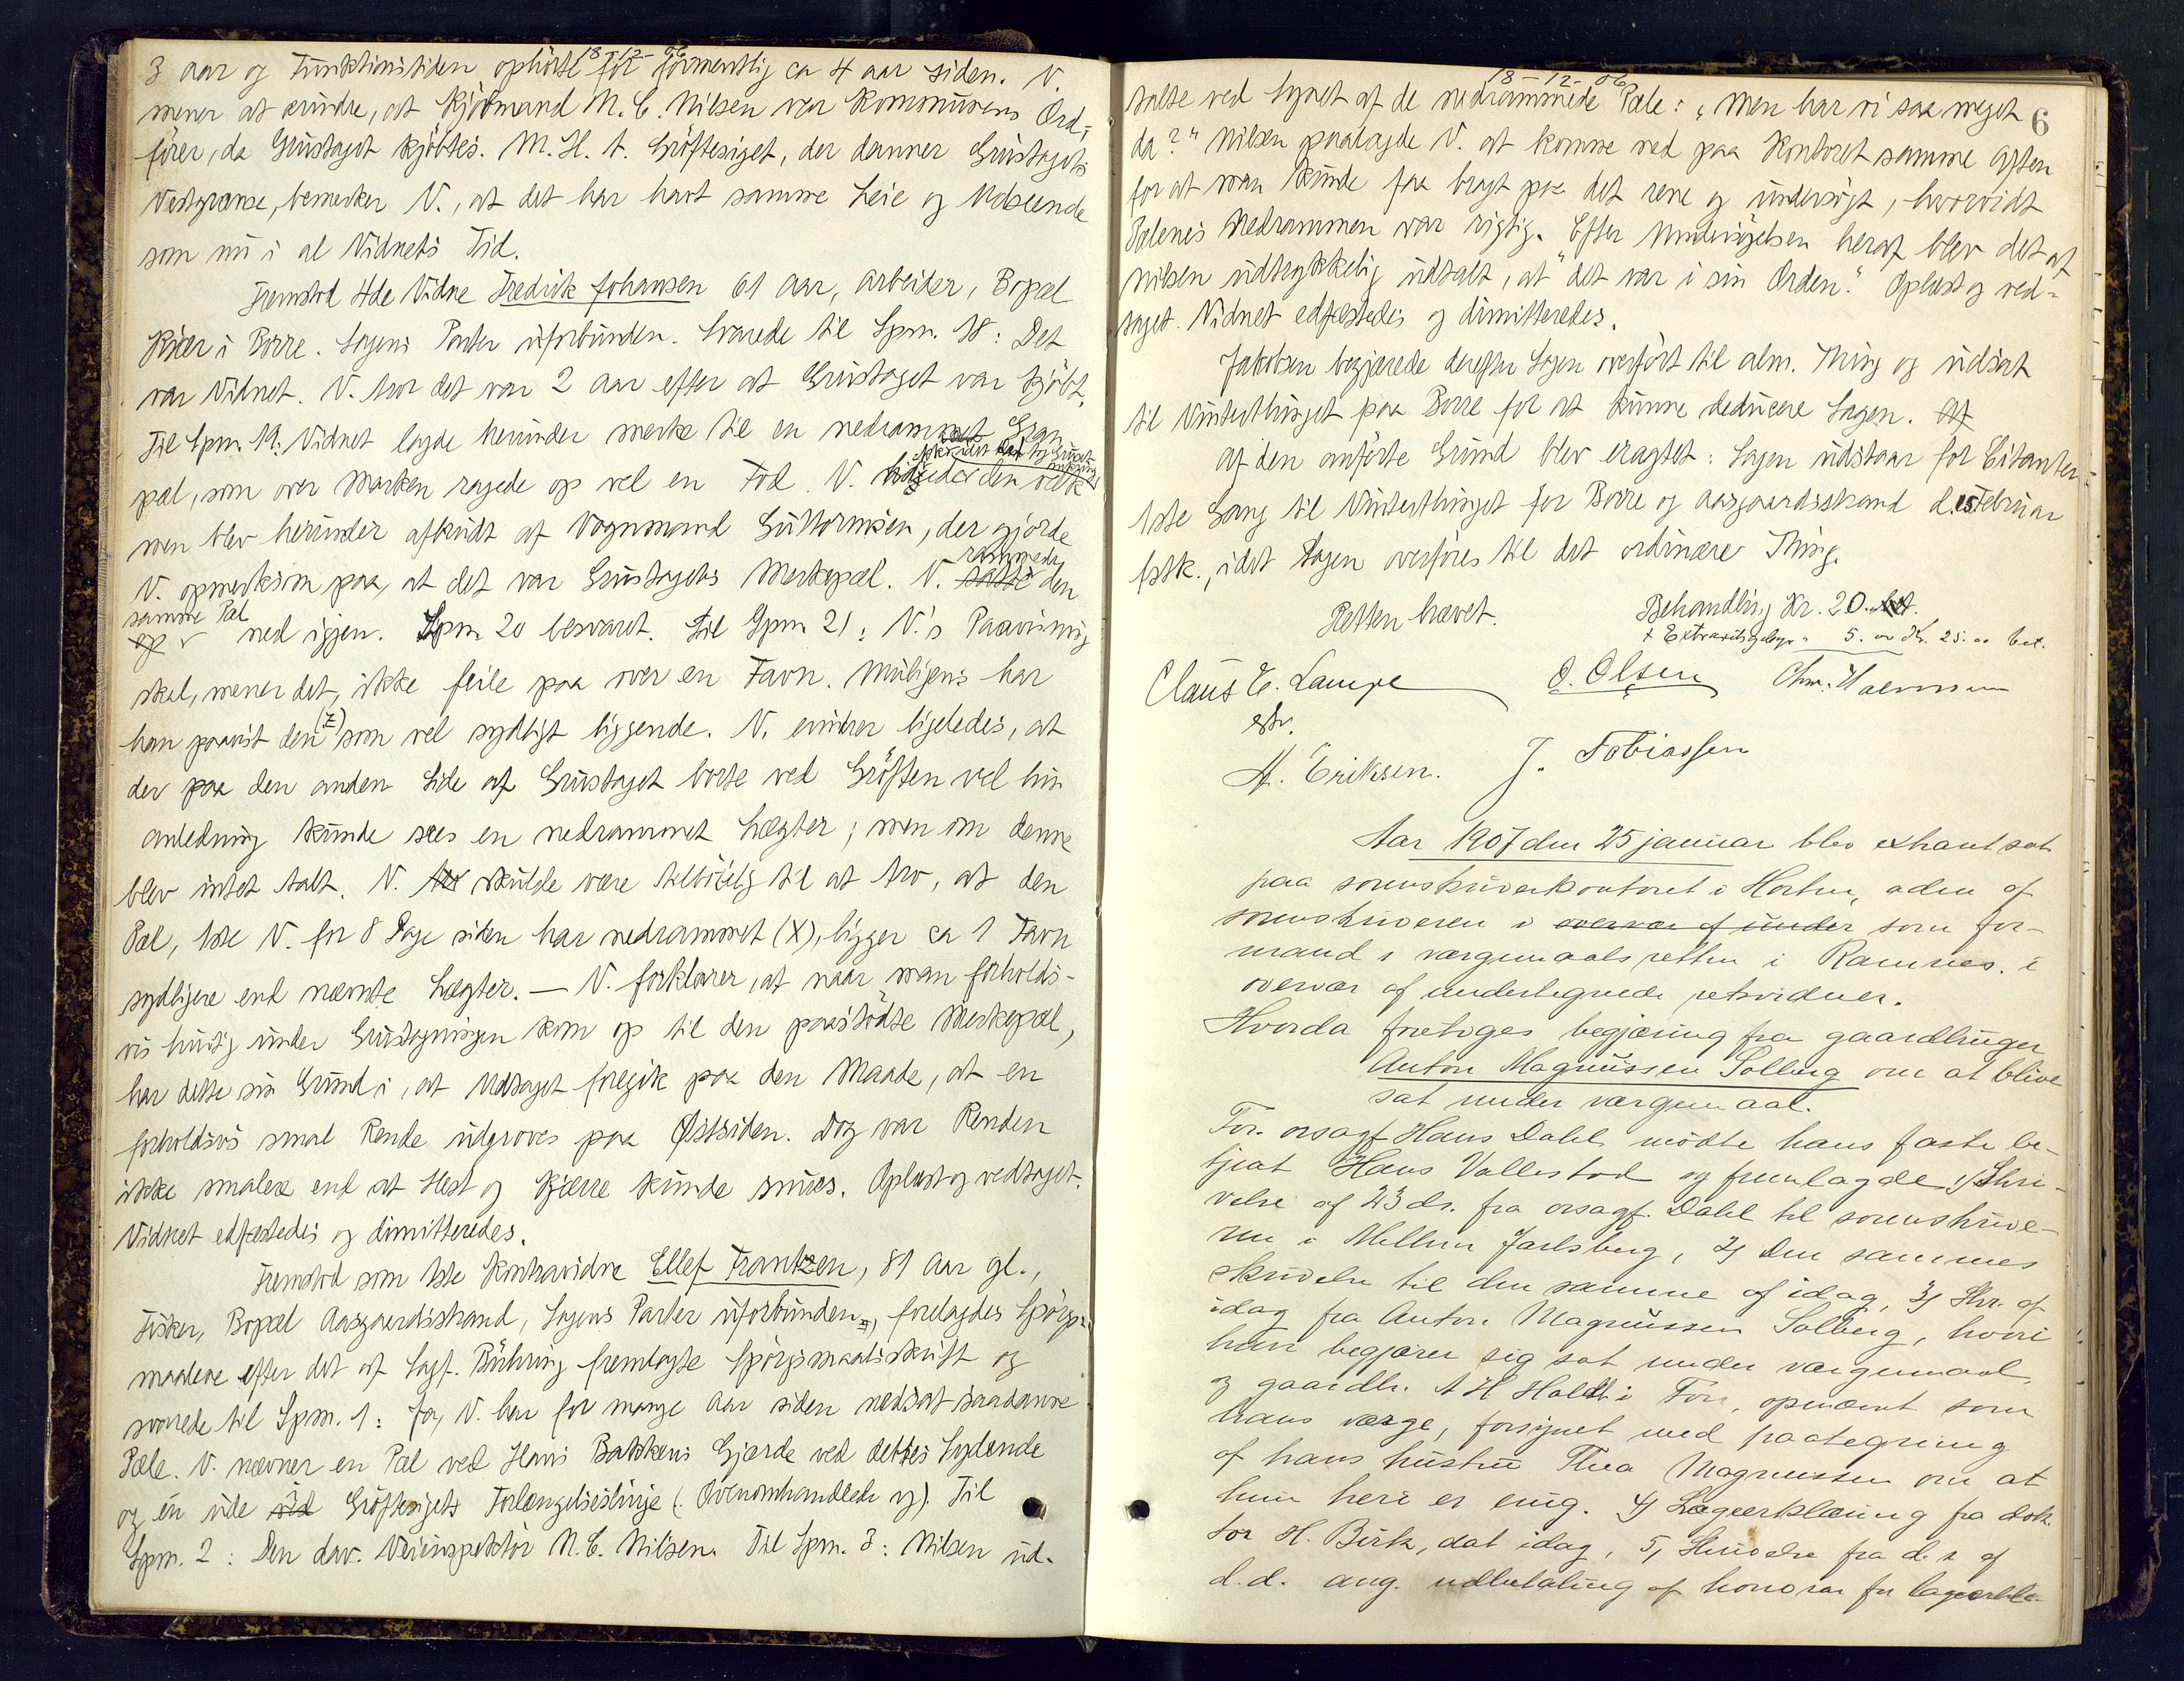 18-12-06
3 aar og Funktionstiden ophörte for formentlig ca 4 aar siden. V.
mener at erindre, at Kjöbmand M. C. Nilsen var Kommunens Ord-
förer, da Grustaget kjöbtes. M. H. t. Gröftesiget, der danner Grustagets
Vestgrænse, bemerker V., at det har havt samme Leie og Udseende
som nu i al Vidnets Tid.
Fremstod 4de Vidne Fredrik Johansen 61 Aar, Arbeider, Bopæl
Kjær i Borre. Sagens Parter uforbunden. Svarede til Spm. 18: Det
var Vidnet. V. tror det var 2 aar efter at Grustaget var kjöbt.
Til Spm. 19: Vidnet lagde herunder merke til en nedrammet Gran
pæl, som over Marken ragede op vel en Fod. V. den væk
men blev herunder afbrudt af Vognmand Guttormsen, der gjorde
V. opmerksom paa, at det var Grustagets Merkepæl. V. satte rammede den
samme Pæl
op ned igjen. Spm 20 besvaret. Til Spm 21: V.'s Paavisning
skal, mener det, ikke feile paa over en Favn. Muligens har
han paavist den (Z) som vel sydligt liggende. V. erindrer ligeledes, at
der paa den anden Side af Grustaget borte ved Gröften ved hin
anledning kunde sees en nedrammet Lægter; men om denne
blev intet talt. V. skulde være tilböielig til at tro, at den
Pæl, 1ste V. for 8 Dage siden har nedrammet (X), ligger ca 1 Favn
sydligere end nævnte Lægter. — V. forklarer, at naar man forholds-
vis hurtig under Grustagningen kom op til den paastödte Merkepæl,
har dette sin Grund i, at Udtaget foregik paa den Maade, at en
forholdsvis smal Rende udgroves paa Østsiden. Dog var Renden
ikke smalere end at Hest og Kjærre kunde snues. Oplæst og vedtaget.
Vidnet edfæstedes og dimitteredes.
Fremstod som 1ste Kontravidne Ellef Frantzen, 81 Aar gl.,
Fisker, Bopæl Aasgaardsstrand, Sagens Parter uforbunden, forelagdes Spörgs-
maalene efter det af Sagf. Bühring fremlagte Spörgsmaalsskrift og
svarede til Spm. 1: Ja, V. har for mange Aar siden nedsat saadanne
Pæle. V. nævner en Pæl ved Hans Bakkens Gjærde ved dettes Sydende
og én ude i Gröftesigets Forlængelseslinje (: Ovenomhandlede y). Til
Spm. 2: Den dav. Veiinspektör M. C. Nilsen. Til Spm. 3: Nilsen ud-
18-12-06
6
talte ved Synet af de nedrammede Pæle: „Men har vi saa meget
da?" Nilsen paalagde V. at komme ned paa Kontoret samme Aften
for at man kunde faa bragt paa det rene og undersögt, hvorvidt
Pælenes Nedrammen var rigtig. Efter Undersögelsen heraf blev det af
Nilsen udtrykkelig udtalt, at "det var i sin Orden." Oplæst og ved-
taget. Vidnet edfæstedes og dimitteredes.
Jakobsen begjærede derefter Sagen overfört til alm. Thing og udsat
til Vinterthinget paa Borre for at kunne deducere Sagen. Af
Af den anförte Grund blev eragtet: Sagen udstaar for Citanten
1ste Gang til Vinterthinget for Borre og Aasgaardsstrand d. 15 Februar
fstk., idet Sagen overföres til det ordinære Thing.
Retten hævet.
Behandling Kr. 20.
+ Extraretsgebyr " 5. oo Kr. 25. oo bet.
Claus E. Lampe
O. Olsen
Chr.
cst.
A. Eriksen.
J. Tobiassen
Aar 1907 den 25 januar blev exhaut sat
paa sorenskriverkontoret i Horten, aden af
sorenskriveren i overvær af under som for-
mand i værgemaalsretten i Ramnes. i
overvær af undertegnede retsvidner.
Hvorda foretoges begjæring fra gaardbruger
Anton Magnussen Solberg om at blive
sat under værgemaal.
For. orsagf. Hans Dahl mödte hans faste be-
tjent Hans Vallestad og fremlagde 1) Skri-
velse af 23 ds. fra orsagf. Dahl til sorenskrive-
ren i Mellem Jarlsberg, 2) Den sammes
skrivelse til den samme af idag, 3) Skr. af
idag fra Anton Magnussen Solberg, hvori
han begjærer sig sat under værgemaal
og gaardbr. A H Holdt i Fon, opnævnt som
hans værge, forsynet med paategning
af hans hustru Thea Magnussen om at
hun heri er enig. 4) Lægeerklæring fra dok-
tor H. Birk, dat idag, 5, Skrivelse fra d. s af
d.d. ang. udbetaling af honorar for lægeerklæ-